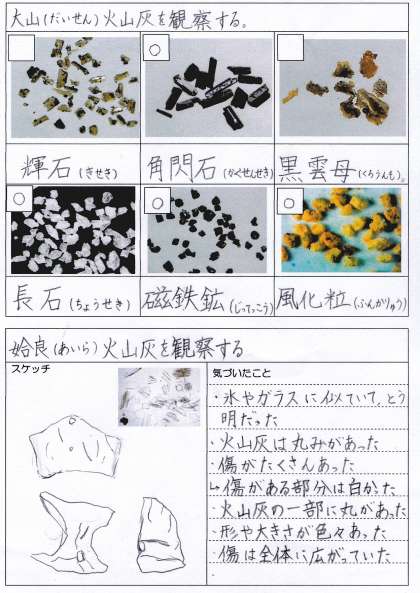 大山(だいせん)火山灰を観察する。
輝石(きせき) 角閃石(かくせんせき) 黒雲母(くろうんも)。
○ ○ ○ ○
長石(ちょうせき) 磁鉄鉱(じってっこう) 風化粒(ふんかりゅう)
姶良(あいら)火山灰を観察する
スケッチ
気づいたこと
・氷やガラスに似ていて、とう
明だった
・火山灰は丸みがあった
・傷がたくさんあった
↳傷がある部分は白かった
・火山灰の一部に丸があった
・形や大きさが色々あった
・傷は全体に広がっていた